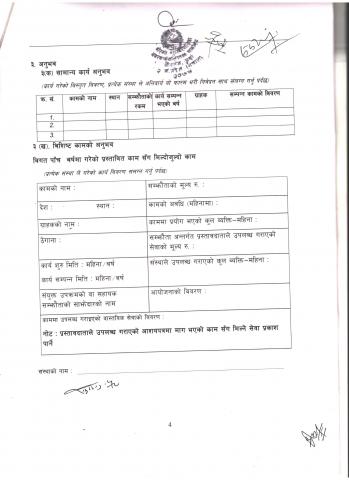 ३. अनुभव
३.(क) सामान्य कार्य अनुभव
(कार्य गरेको विस्तृत विवरण, प्रत्येक संस्था ले अनिवार्य यो फाराम भरी निवेदन साथ संलग्न गर्नु पर्नेछ)
क्र. सं. कामको नाम स्थान सम्झौताको रकम कार्य सम्पन्न भएको बर्ष ग्राहक सम्पन्न कामको विवरण
1.
2.
3.
३ (ख). विशिष्ट कामको अनुभव
विगत पाँच बर्षमा गरेको प्रस्तावित काम सँग मिल्दोजुल्दो काम
(प्रत्येक संस्था ले गरेको कार्य विवरण संलग्न गर्नु पर्नेछ)
कामको नाम : सम्झौताको मूल्य रु. :
देश : स्थान : कामको अवधि (महिनामा) :
ग्राहकको नाम : काममा प्रयोग भएको कुल व्यक्ति–महिना :
ठेगाना : सम्झौता अन्तर्गत प्रस्तावदाताले उपलब्ध गराएको सेवाको मूल्य रु. :
कार्य शुरु मिति : महिना/बर्ष संस्थाले उपलब्ध गराएको कुल व्यक्ति–महिना :
कार्य सम्पन्न मिति : महिना/बर्ष
संयुक्त उपक्रमको वा सहायक सम्झौताको साझेदारको नाम आयोजनाको विवरण :
काममा उपलब्ध गराइएको वास्तविक सेवाको विवरण :
नोट : प्रस्तावदाताले उपलब्ध गराएको आशयपत्रमा माग भएको काम सँग मिल्ने सेवा प्रकाश
पार्ने
संस्थाको नाम :
4